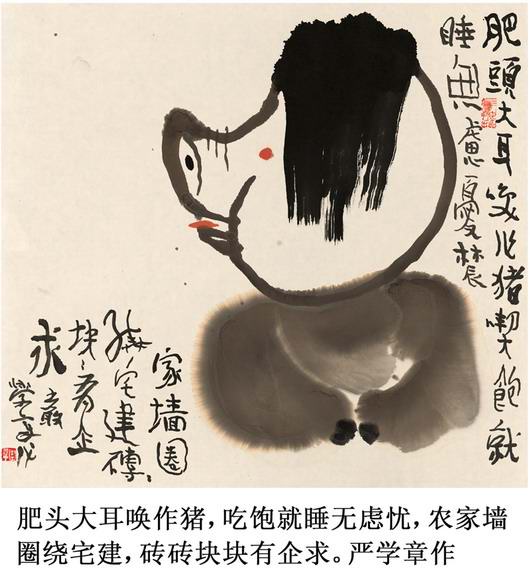 肥頭大耳唤作猪喫飽就
睡無慮憂辳
家墙圈
繞宅建磚〻
块〻有企
求
学章作
肥头大耳唤作猪，吃饱就睡无虑忧，农家墙
圈绕宅建，砖砖块块有企求。严学章作